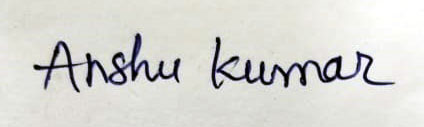 Anshu kumar